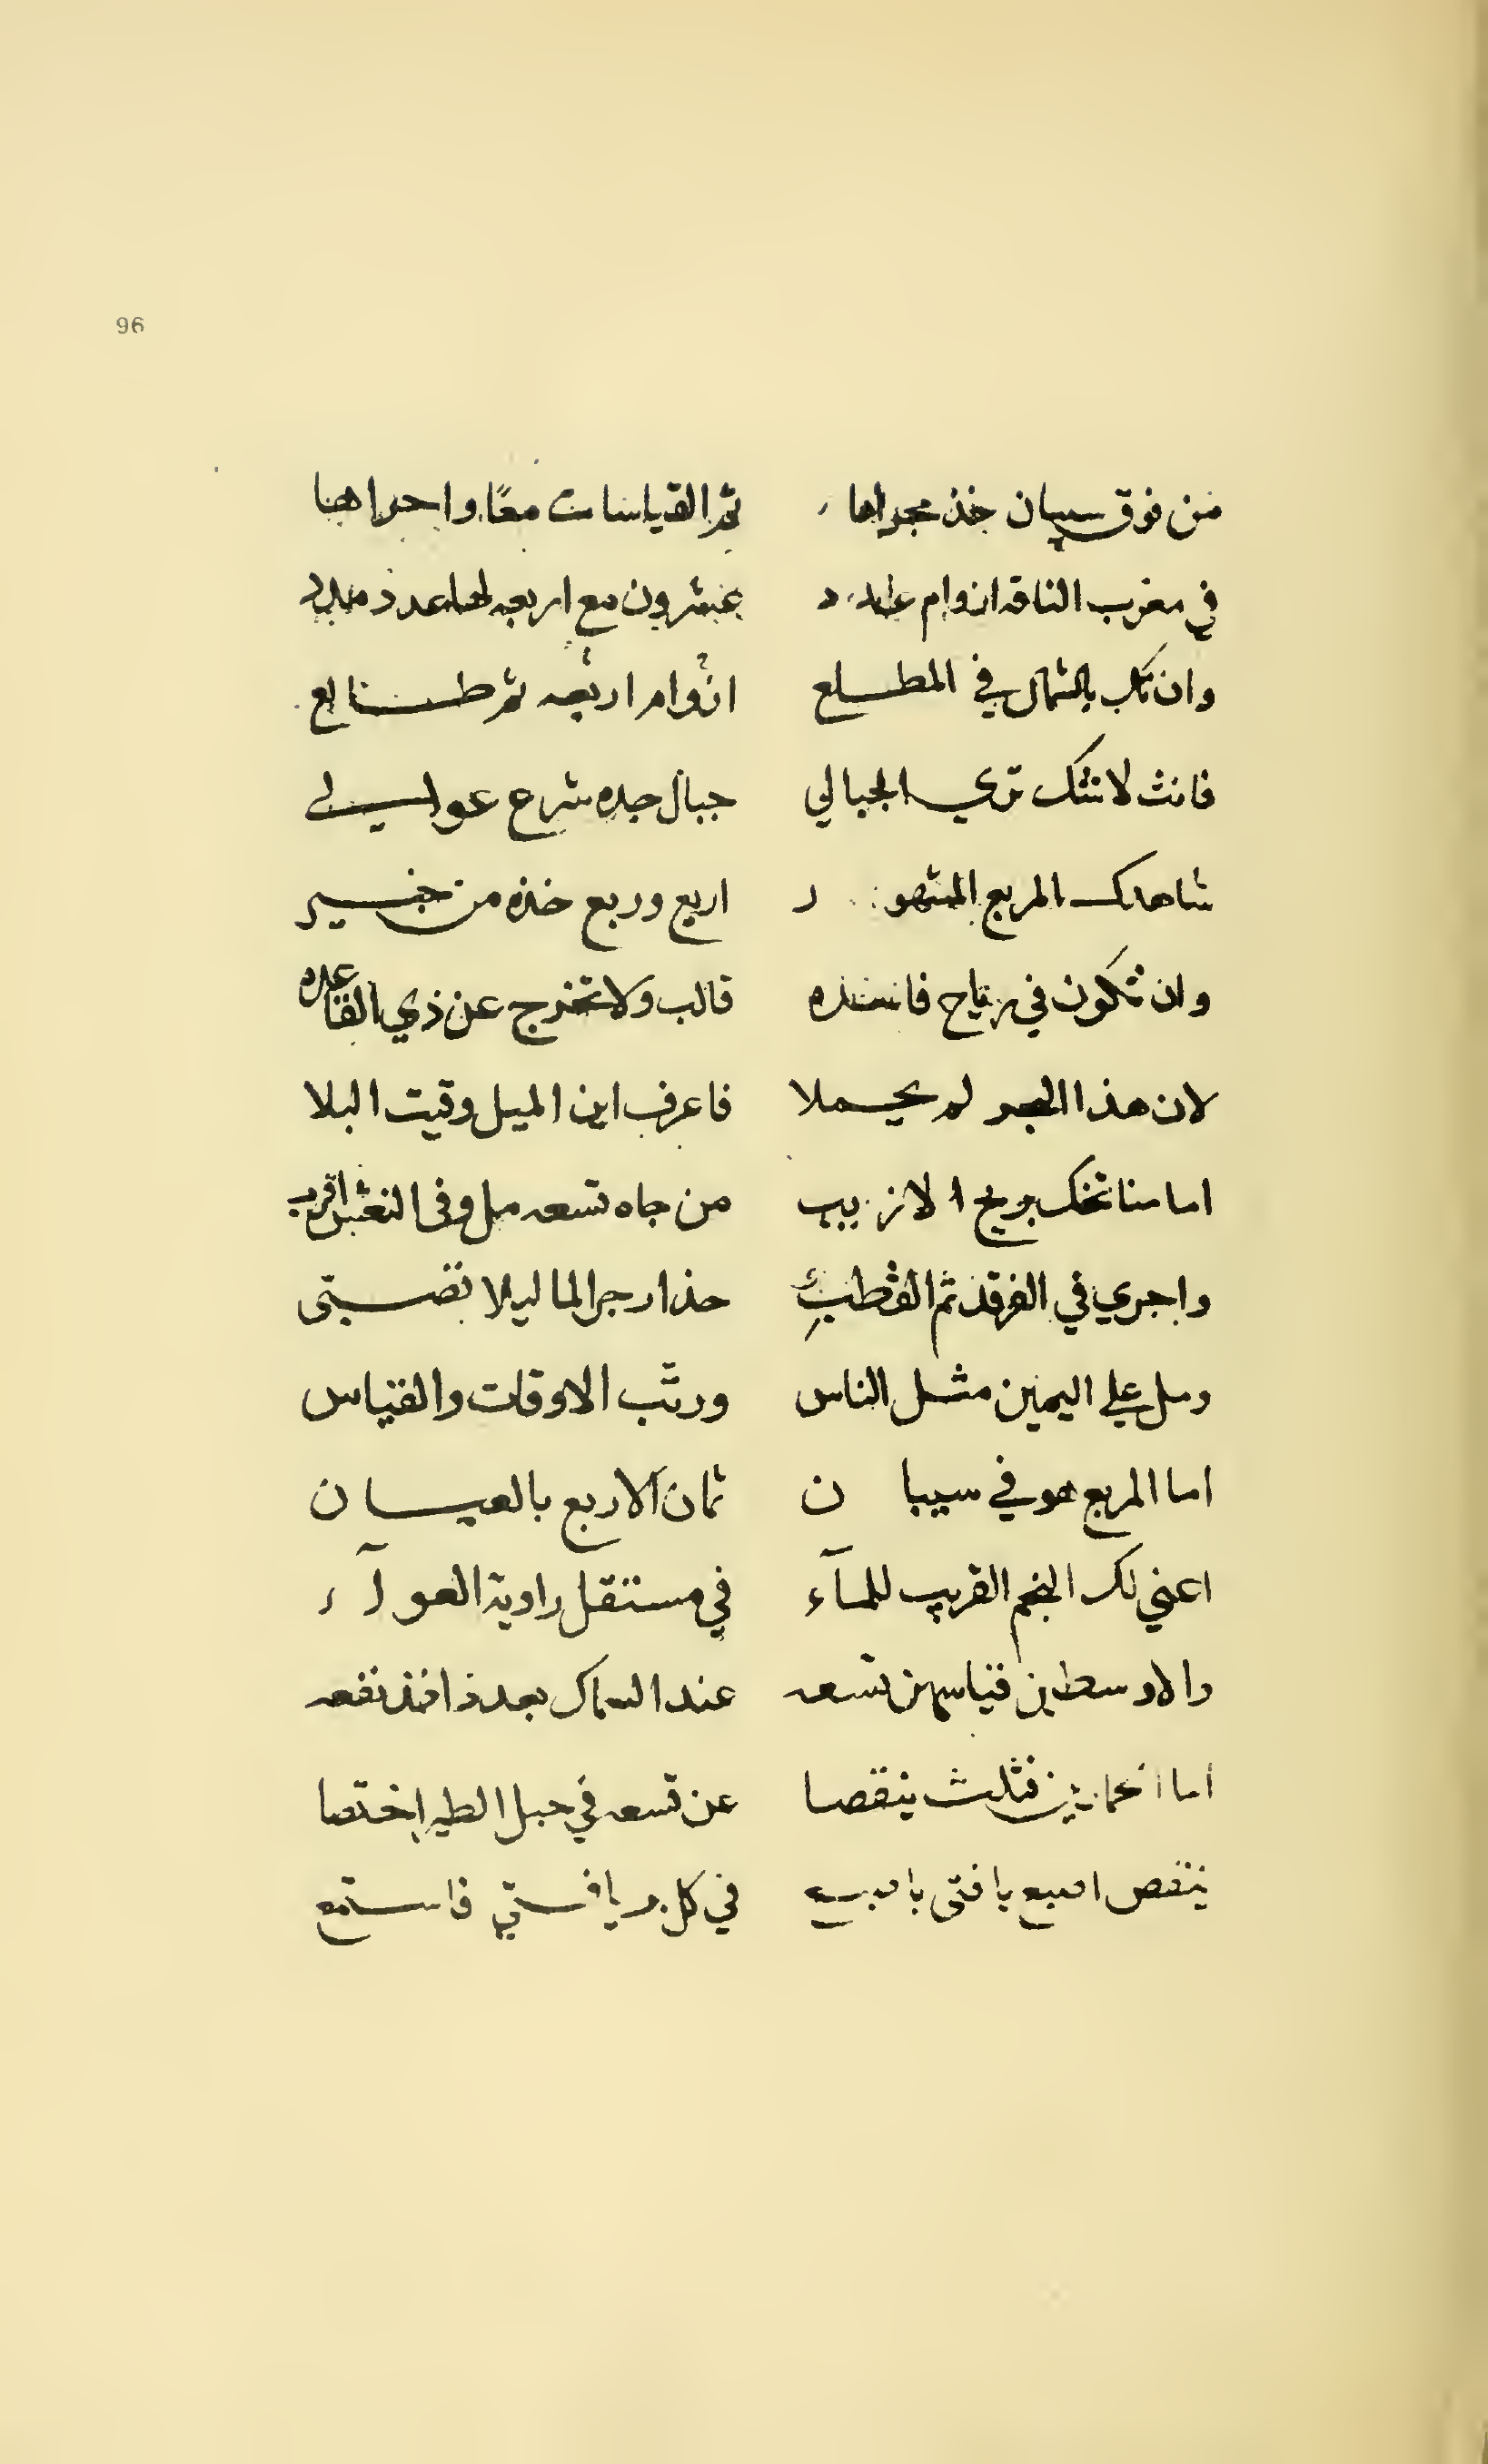 96
من فوق سيبان خذ مجراها ثم القياسات معًا واحراها
في مغرب الناقه ازوام عدد عشرون مع اربعه لها عدد
وان تكن بالشمال في المطلع ازوام اربعه ثم طالع
فانت لا تشك ترى الجبالي جبال جده شرع عوالي
شاهدك المربع المشهور اربع وربع خذه من خبير
وان تكون في رياح فاسده قالب ولا تخرج عن ذي القاعده
لان هذا البحر لم يحملا فاعرف اين الميل وقيت البلا
اما منا تخك بريح الازيب من جاه تسعه مل وفى النعش اقرب
واجري في الفرقد ثم القطب حذار جر الما ليلا تصبى
ومل على اليمين مثل الناس ورتب الاوقات والقياس
اما المربع هو في سيبان ثمان الاربع بالعيان
اعني لك النجم القريب للمآء في مستقل راوية العوآء
والاوسطين قياسهن تسعه عند السماك بعد ذا فخذ نفعه
اما الحمارين فثلث ينقصا عن تسعه في جبل الطير اختصا
ينقص اصبع يا فتى باصبع في كل بر يا فتى فاستمع